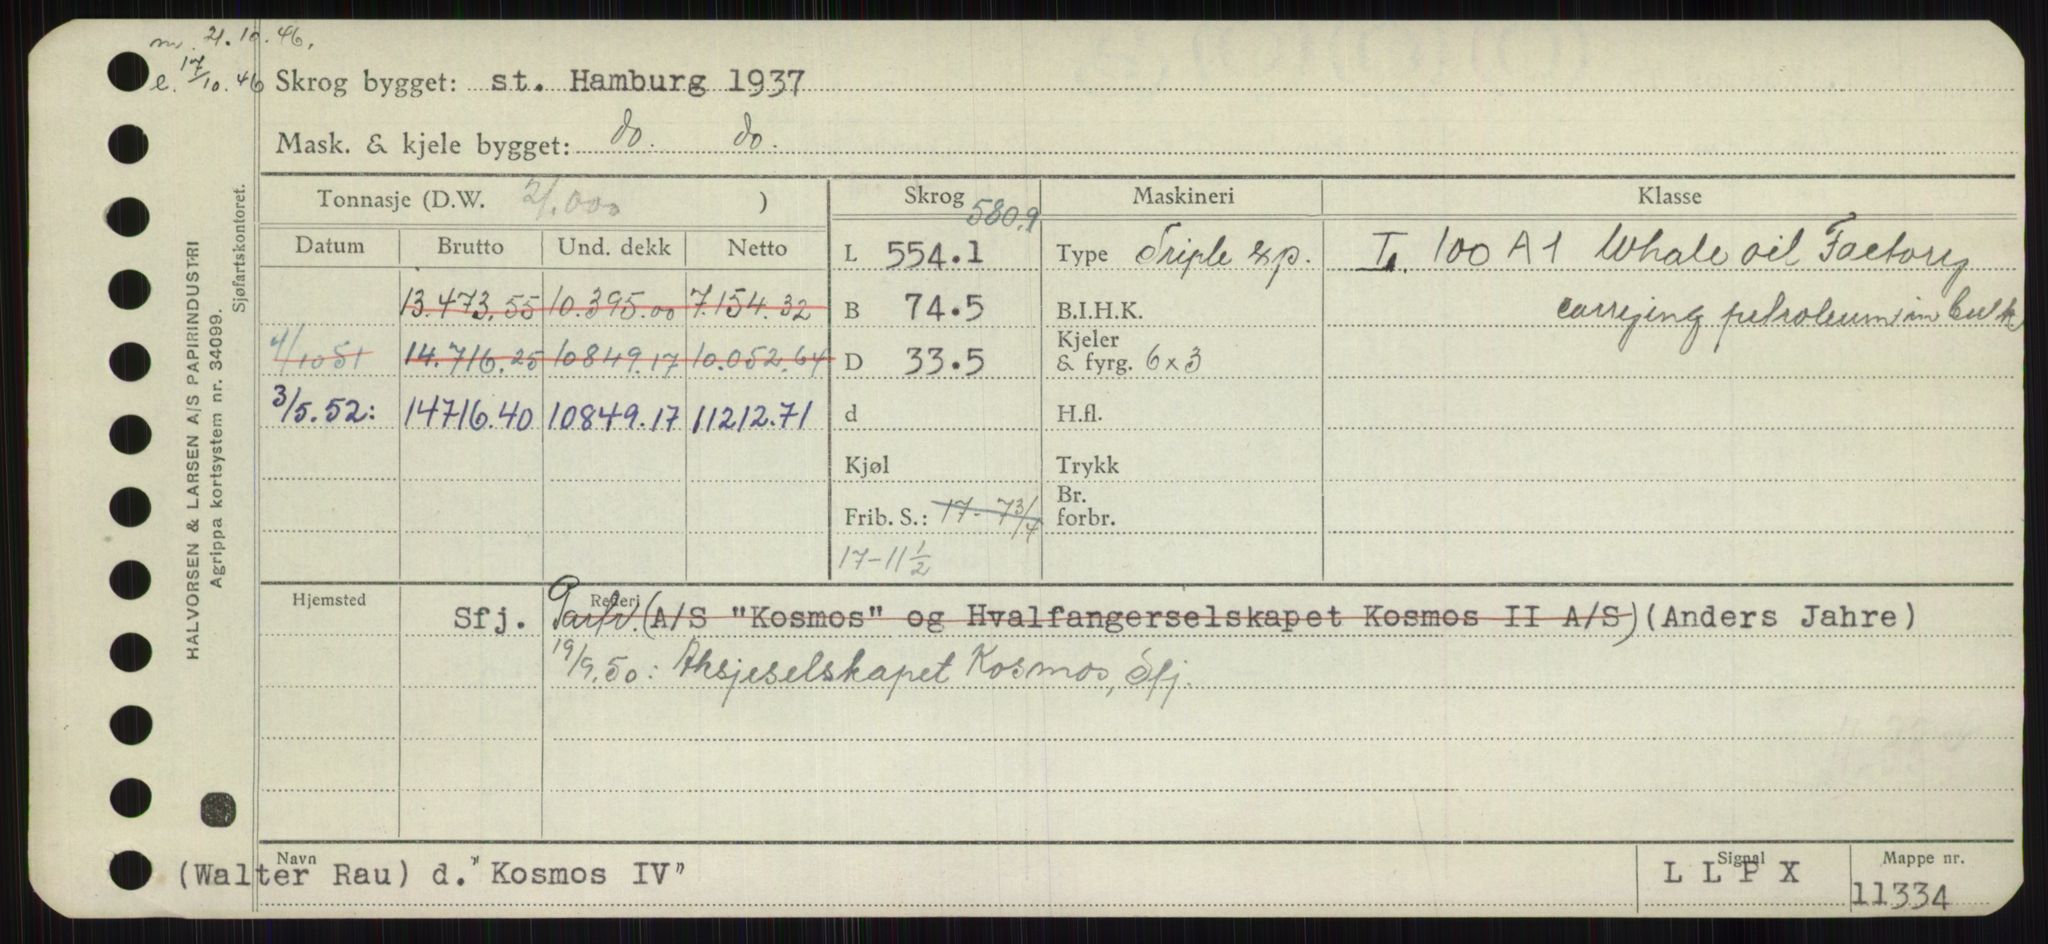 m. 21.10.46.
e. 17/10.46
Skrog bygget: st. Hamburg 1937
Mask. & kjele bygget: do. do.
HALVORSEN & LARSEN A/S PAPIRINDUSTRI
Agrippa kortsystem nr. 34099.
Sjøfartskontoret.
Tonnasje (D.W. 21.000 )
Skrog 580.9
Maskineri
Klasse
Datum Brutto Und. dekk Netto
L 554.1
Type Triple exp.
I. 100 A 1 Whale oil Factory
13.473.55 10.395.00 7.154.32
B 74.5
B.I.H.K.
carrying petroleum in bulk
4/10 51 14.716.25 10849.17 10.052.64
D 33.5
Kjeler
& fyrg. 6x3
3/5.52: 14716.40 10849.17 11212.71
d
H.fl.
Kjøl
Trykk
Frib. S.: 17-7 3/4
Br.
forbr.
17-11 1/2
Hjemsted
Rederi
Sfj. Partr. (A/S "Kosmos" og Hvalfangerselskapet Kosmos II A/S) (Anders Jahre)
19/9.50: Aksjeselskapet Kosmos, Sfj.
Navn
(Walter Rau) d. "Kosmos IV"
Signal
L L P X
Mappe nr.
11334